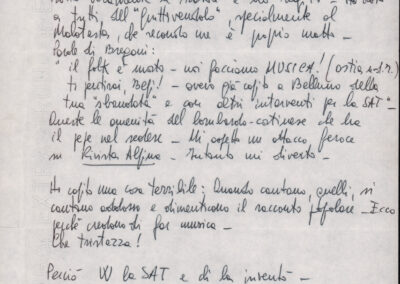 a tutti, del "fruttivendolo", specialmente al
Malatesta, che secondo me è proprio matto -
Parole di Bregani:
"il folk è morto - noi facciamo MUSICA! (ostia n.d.r.)
ti pentirai, Bepi! - avevo già capito a Belluno della
tua "sbandata" e con altri interventi per la SAT" -
Queste le amenità del lombardo- che ha
il pepe nel sedere - Mi aspetto un attacco feroce
su Rivista Alpina - Intanto mi diverto -
Ho capito una cosa terribile: Quando cantano, quelli, si
cantano addosso e dimenticano il racconto popolare - Ecco
perché credono di far musica -
Che tristezza!
Perciò W la SAT e chi la inventò -